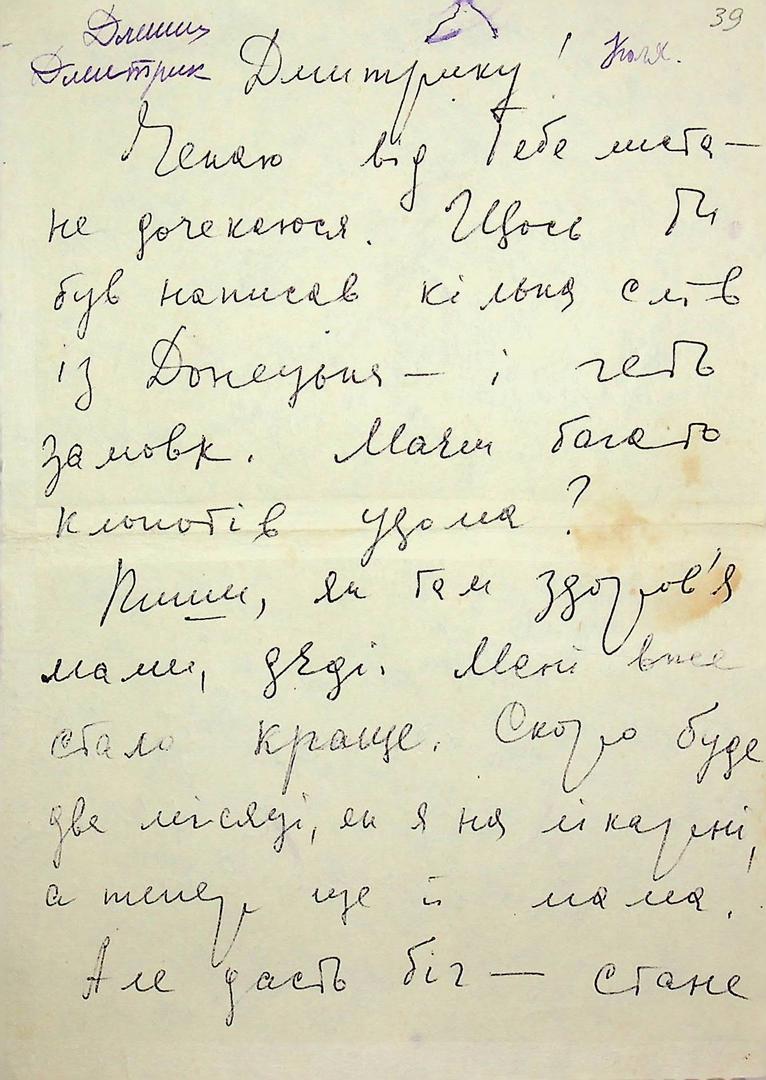 39
Дмитрик Дмитрику!
Чекаю від Тебе листа —
не дочекаюся. Щось Ти
був написав кілька слів
із Донецька — і геть
замовк. Маєш багато
клопотів удома?
Пиши, як там здоров'я
мами, дяді. Мені вже
стало краще. Скоро буде
два місяці, як я на лікарні,
а тепер ще й мама.
Але дасть біг — стане